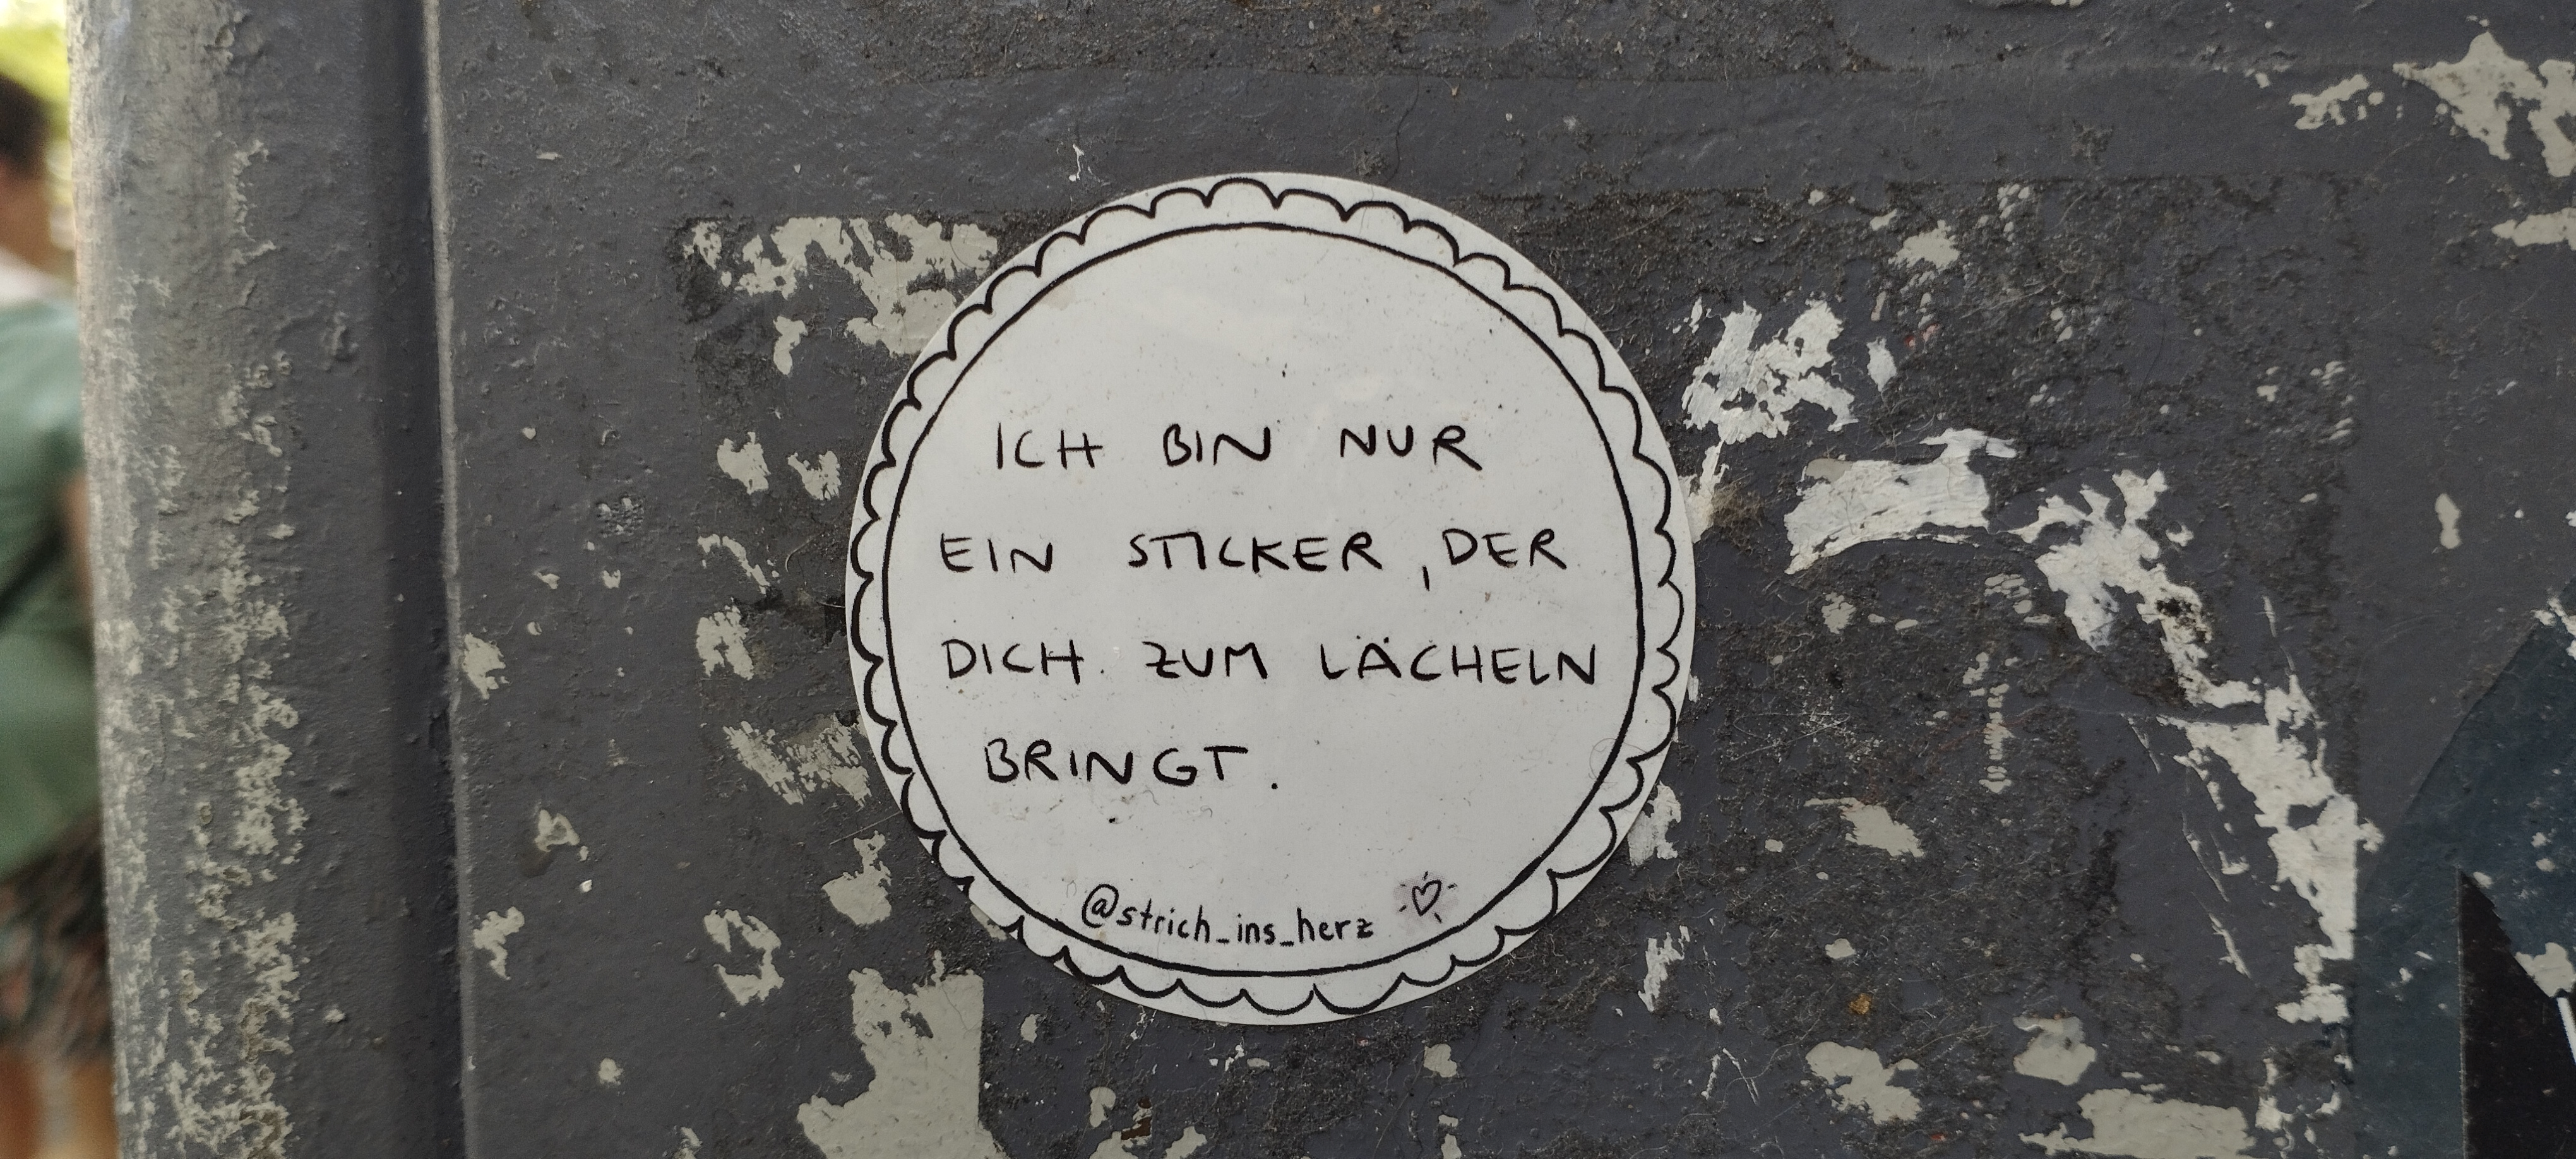 ICH BIN NUR
EIN STICKER, DER
DICH ZUM LÄCHELN
BRINGT.
@strich_ins_herz